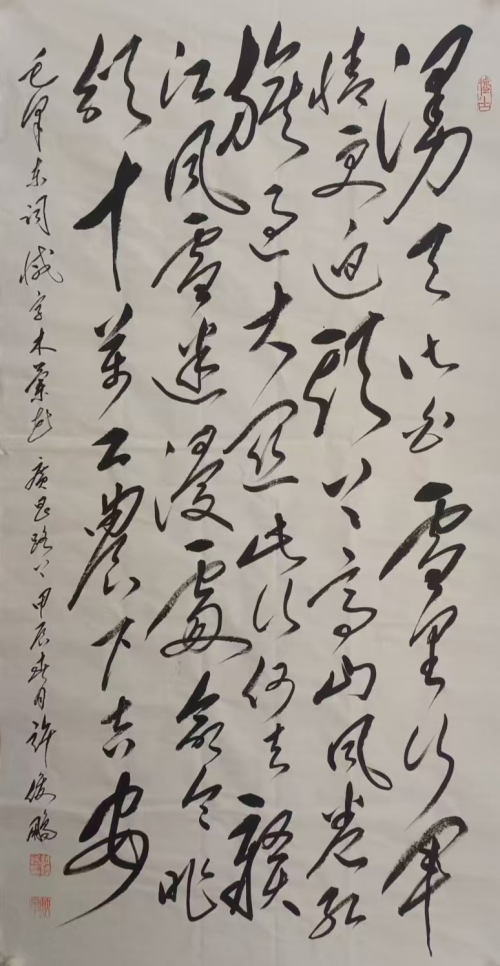 漫天皆白雪里行军
情更迫頭上高山风卷红
旗过大关此行何去赣
江风雪迷漫處命令昨
颁十萬工農下吉安
毛泽东词 减字木蘭花 廣昌路上 甲辰春月 许俊鹏